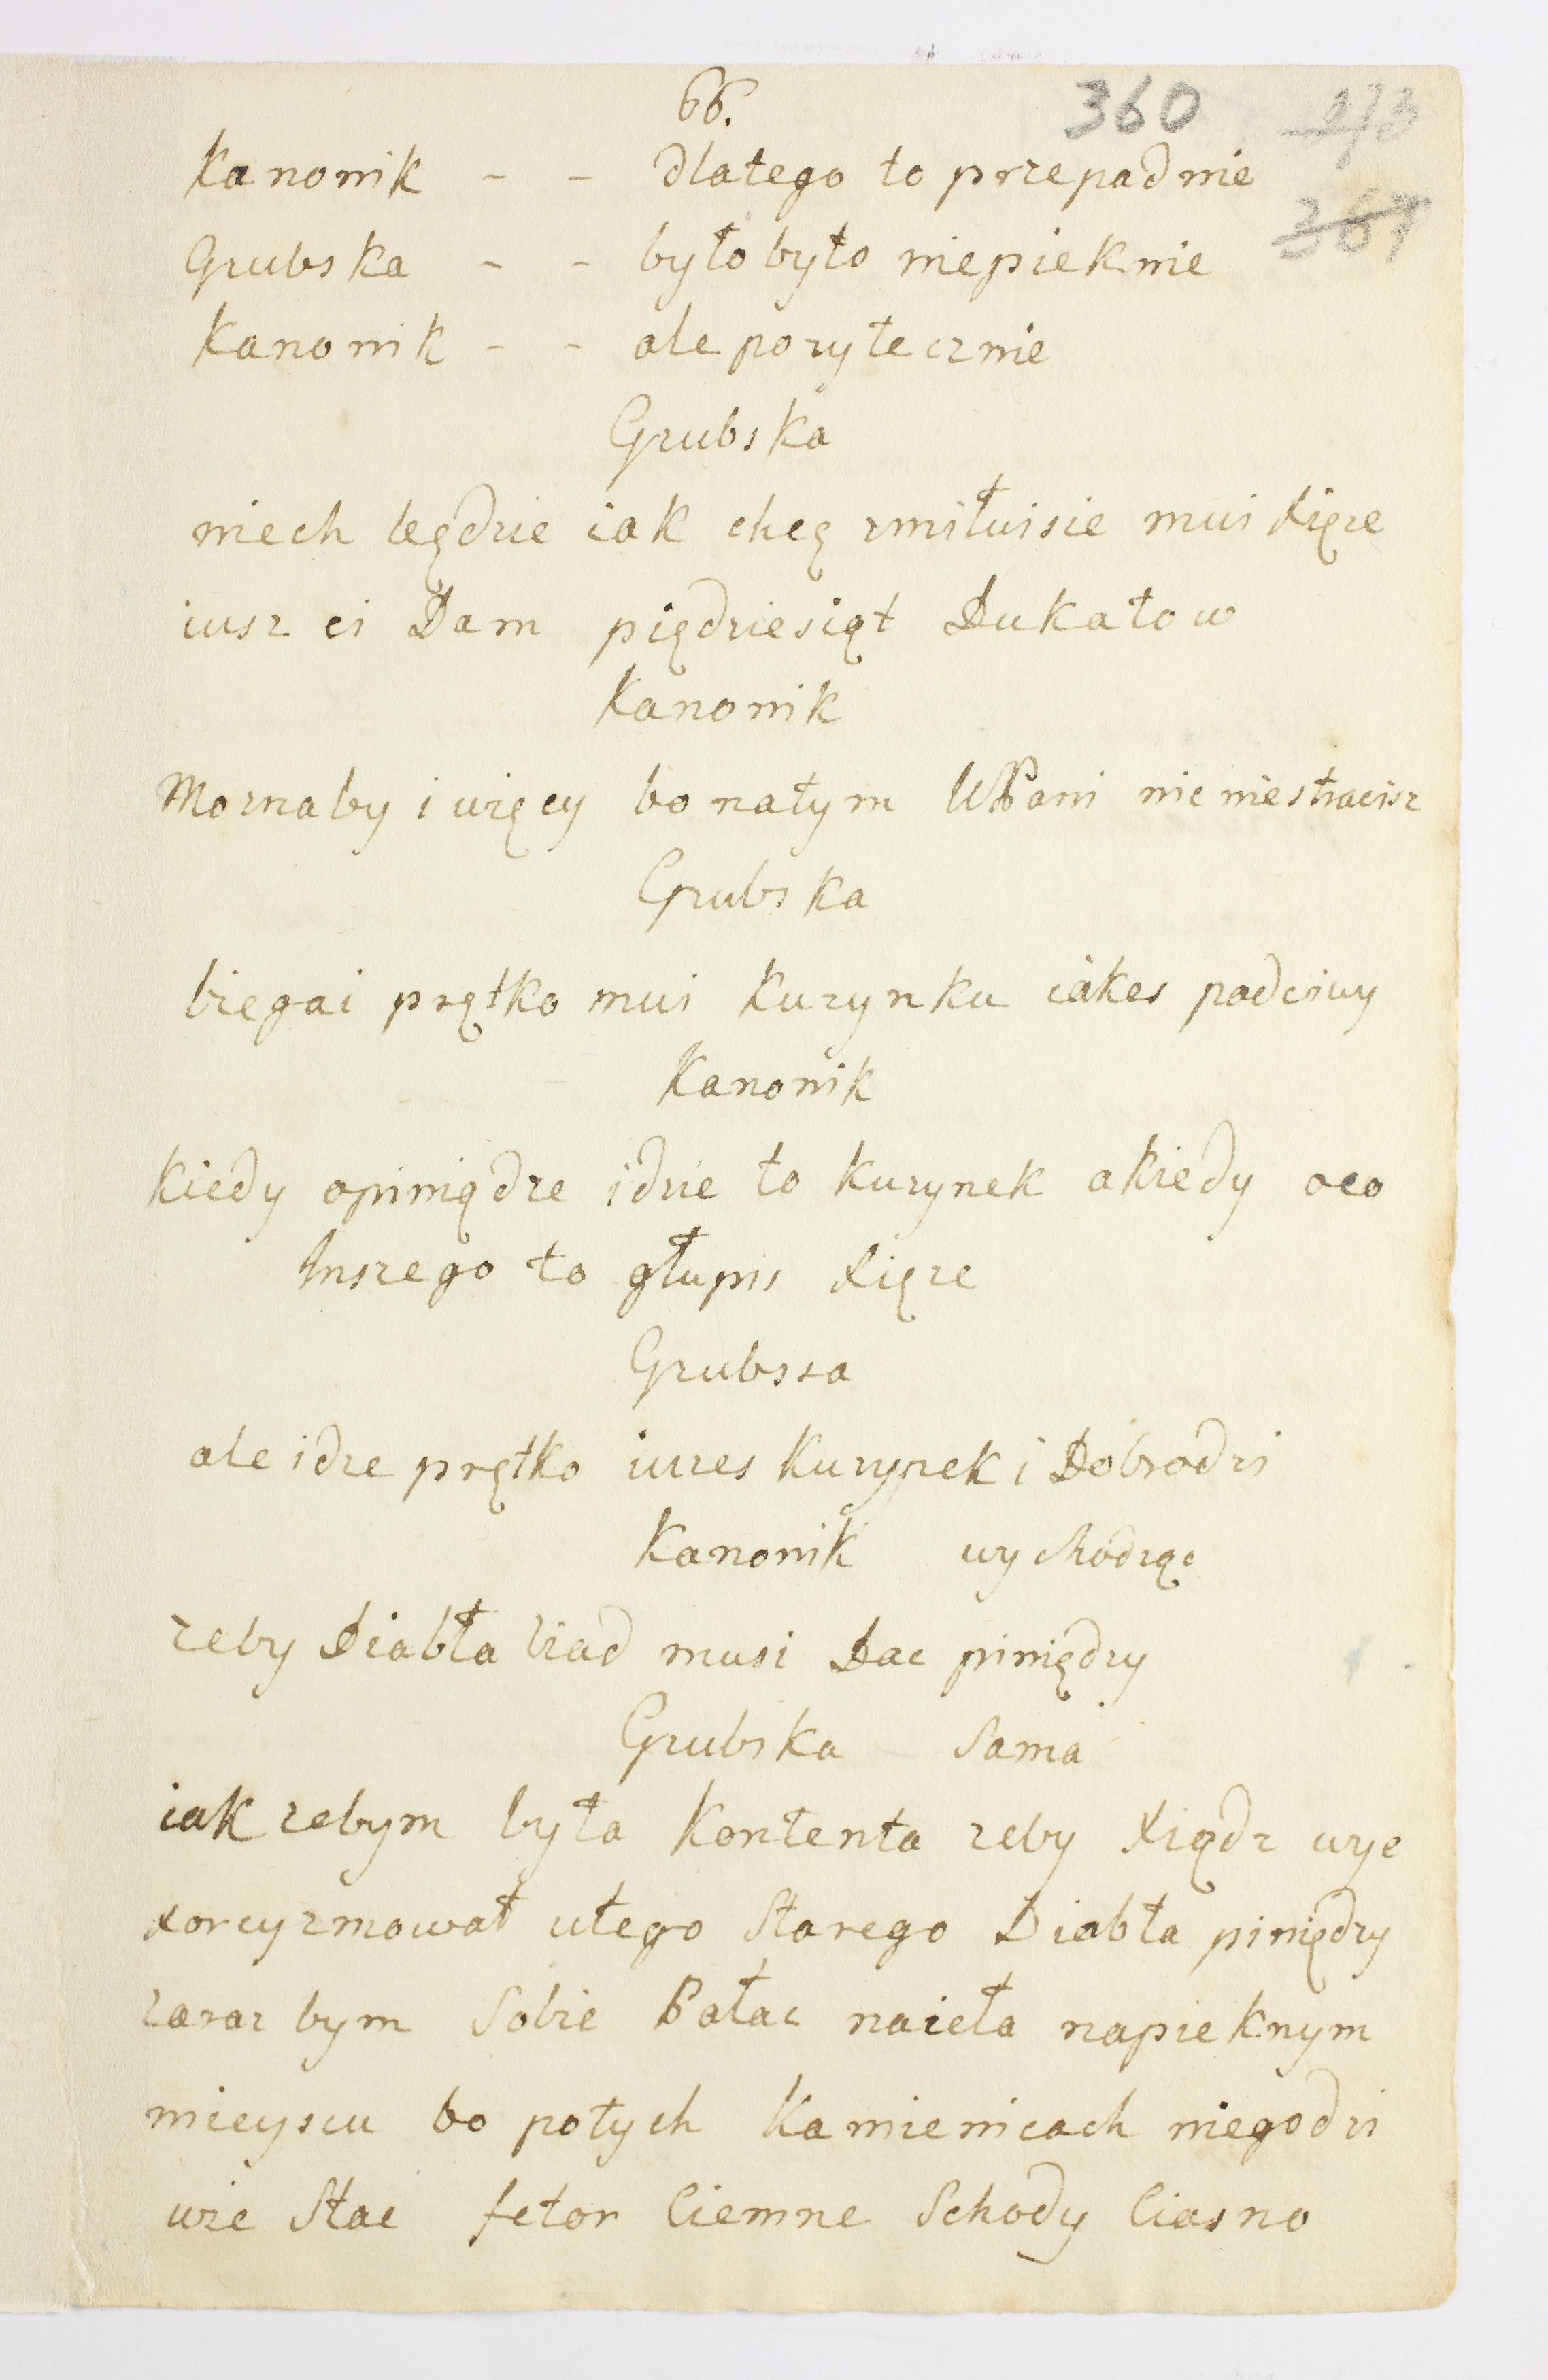 66.
360 273
Kanonik - - dlatego to przepadnie
367
Grubska - - byłobyło niepieknie
Kanonik - - ale pozytecznie
Grubska
niech będzie iak chcę zmiłuisie mui Xięze
iusz ci Dam piędziesiąt Dukatow
Kanonik
Moznaby i więcy bo natym WPani nic niestracisz
Grubska
biegai prętko mui Kuzynku iakes podciwy
Kanonik
Kiedy opiniądze idzie to Kuzynek akiedy oco
Inszego to głupis Xięze
Grubssa
ale idze prętko iuzes Kuzynek i Dobrodzi
Kanonik wychodząc
zeby Diabła ziad musi Dac piniędzy
Grubska Sama
iak zebym była Kontenta zeby Xiądz wye
xorcyzmował utego Starego Diabła piniędzy
zaraz bym Sobie Pałac naieła napieknym
mieyscu bo potych Kamienicach niegodzi
wie Stac fetor Ciemne Schody Ciasno